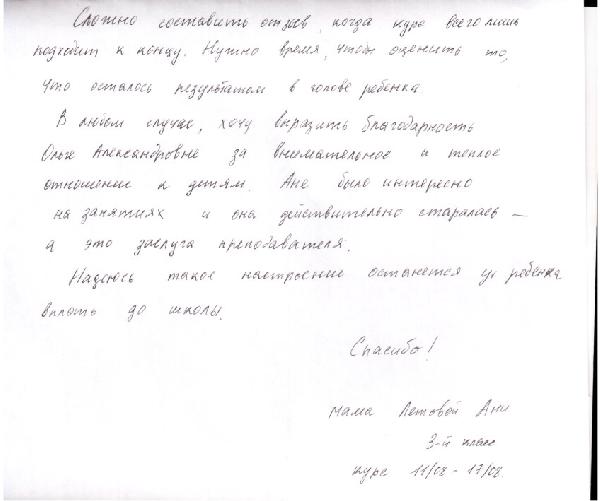 Сложно составить отзыв, когда курс всего лишь
подходит к концу. Нужно время, чтобы оценить то,
что осталось результатом в голове ребенка
В любом случае, хочу выразить благодарность
Ольге Александровне за внимательное и теплое
отношение к детям. Ане было интересно
на занятиях и она действительно старалась –
а это заслуга преподавателя.
Надеюсь такое настроение останется у ребенка
вплоть до школы.
Спасибо!
мама Летовой Ани
3-й класс
курс 11/08 - 17/08.